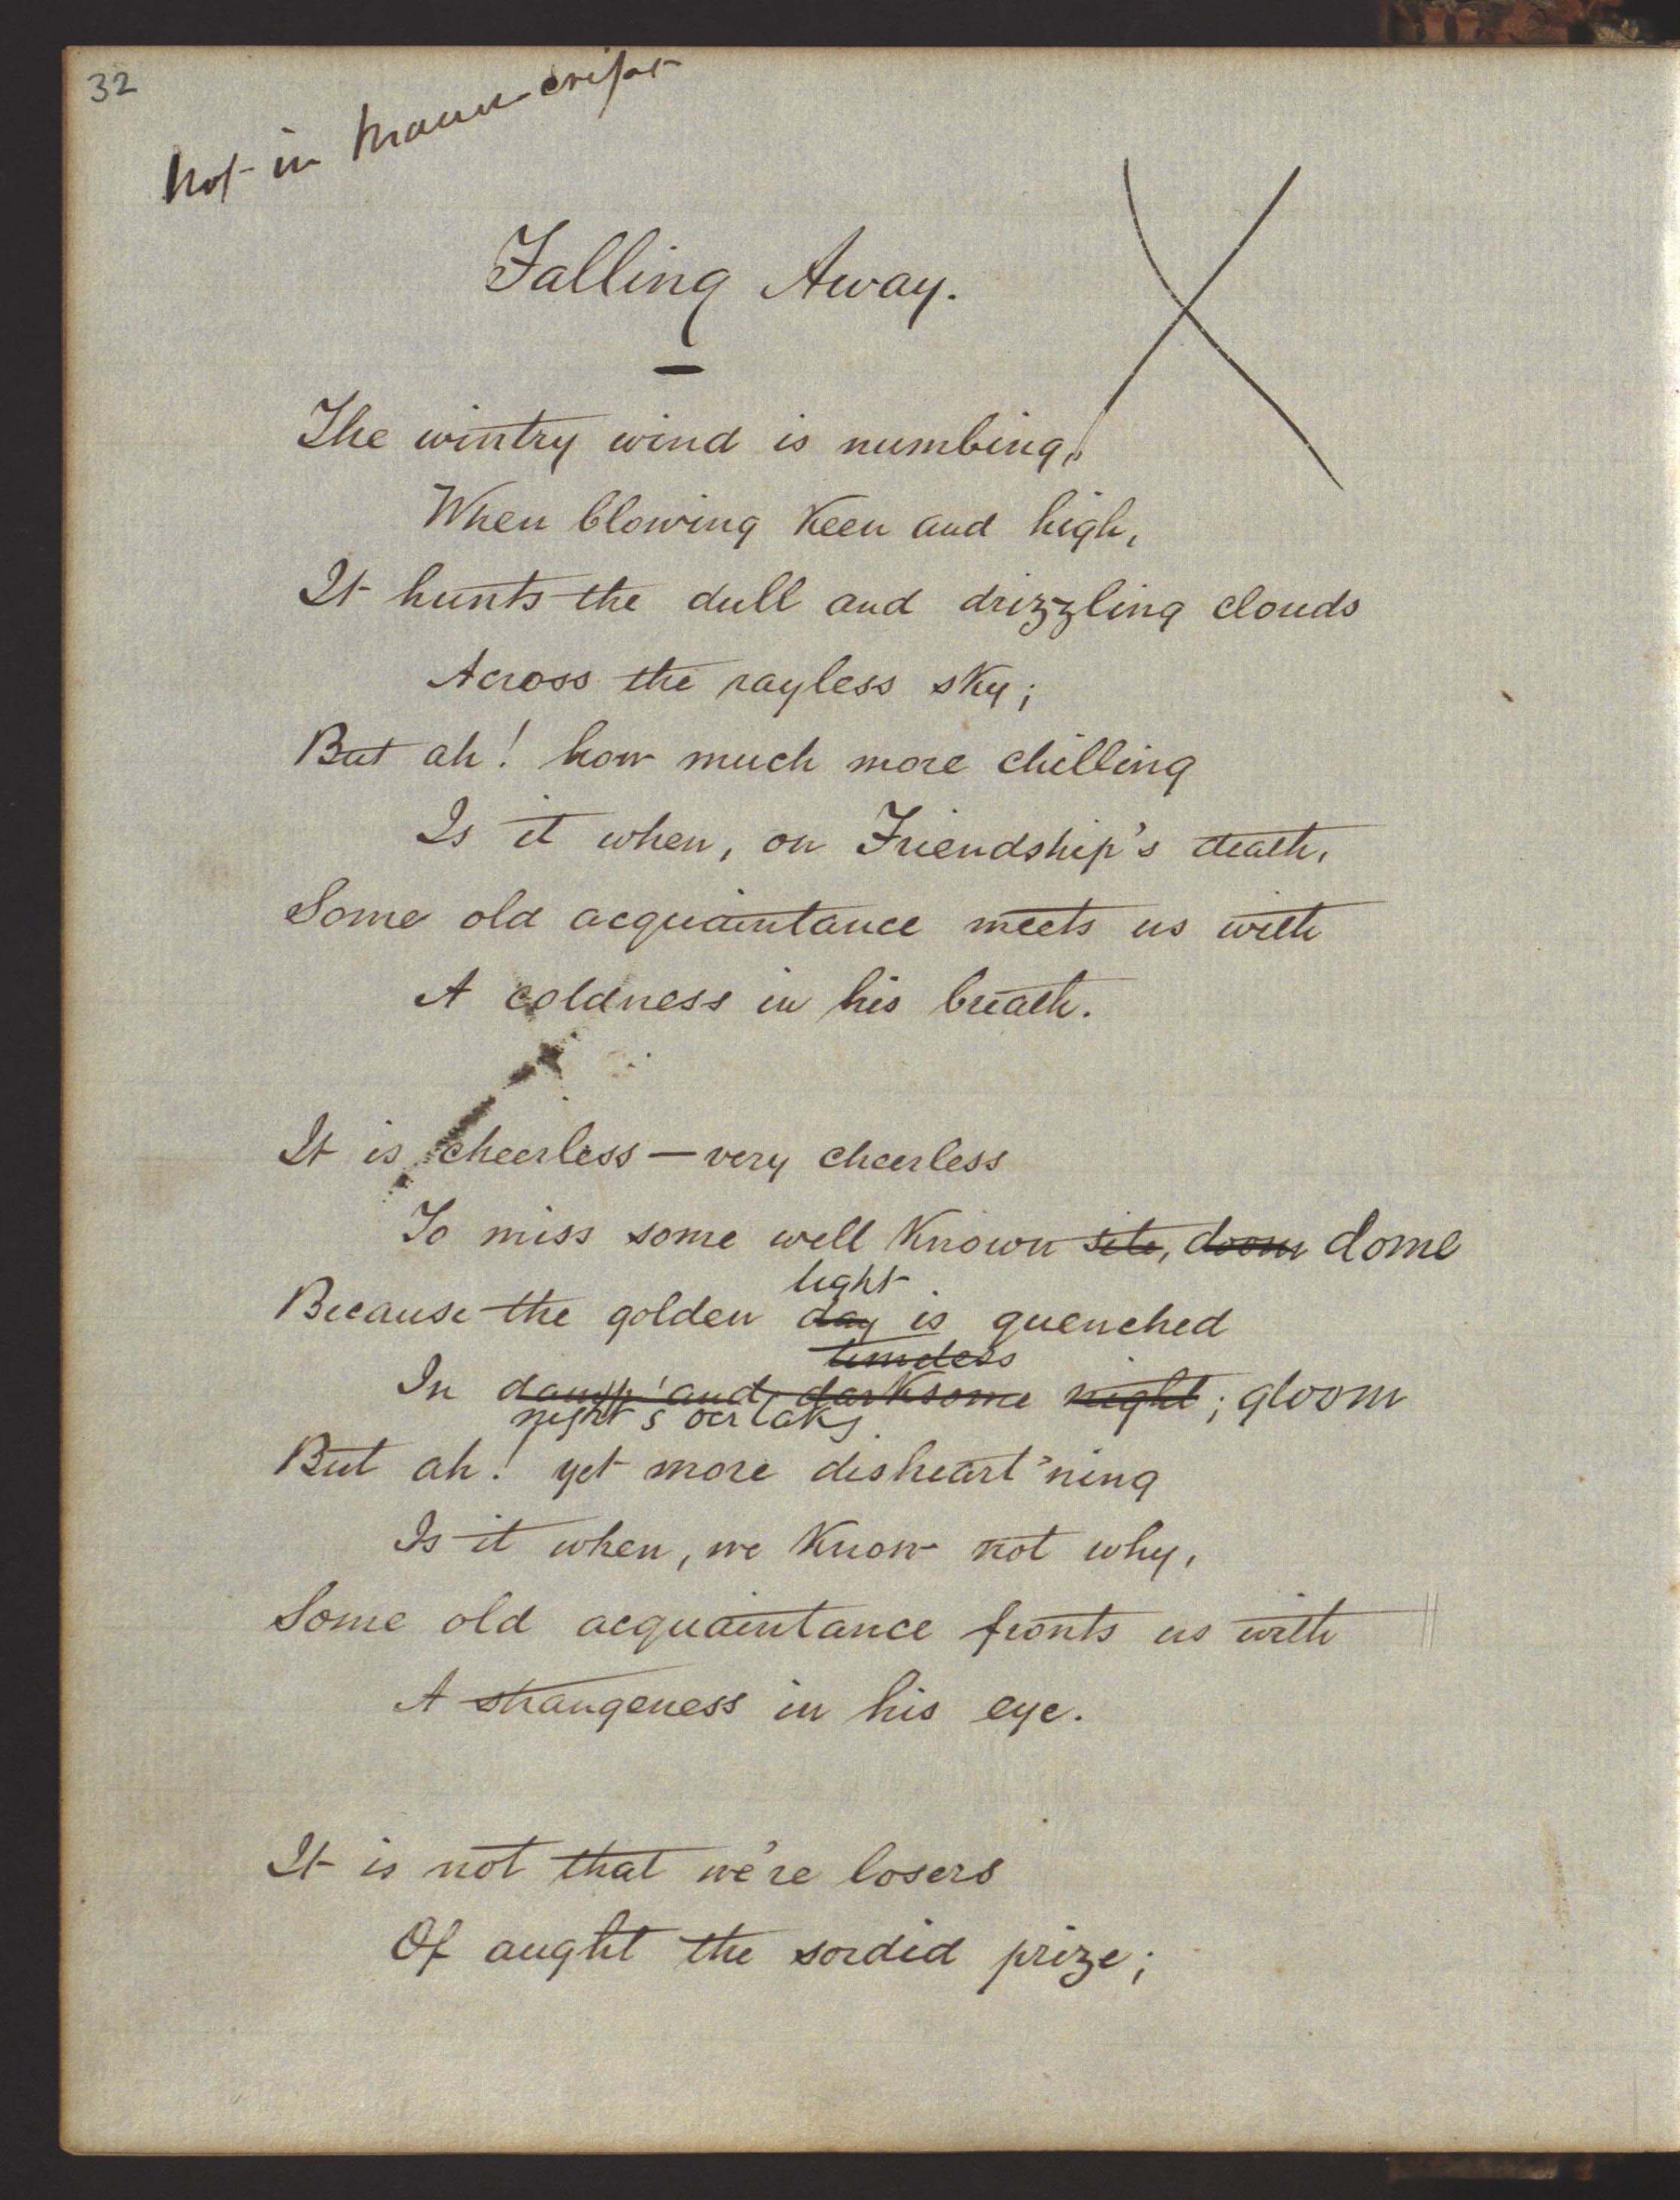 32
Not in Manuscript
Falling Away.
The wintry wind is numbing,
When blowing keen and high,
It hunts the dull and drizzling clouds
Across the rayless sky;
But ah! how much more chilling
Is it when, on Friendship's death,
Some old acquaintance meets us with
A coldness in his breath.
It is cheerless — very cheerless
To miss some well known site, doom dome
light
Because the golden day is quenched
In damp and darksome night; gloom
night's
But ah! yet more disheart'ning
Is it when, we know not why,
Some old acquaintance fronts us with
A strangeness in his eye.
It is not that we're losers
Of aught the sordid prize;